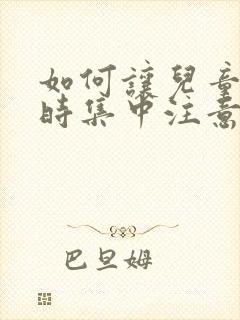 如何讓兒童
時集中注意
巴旦姆